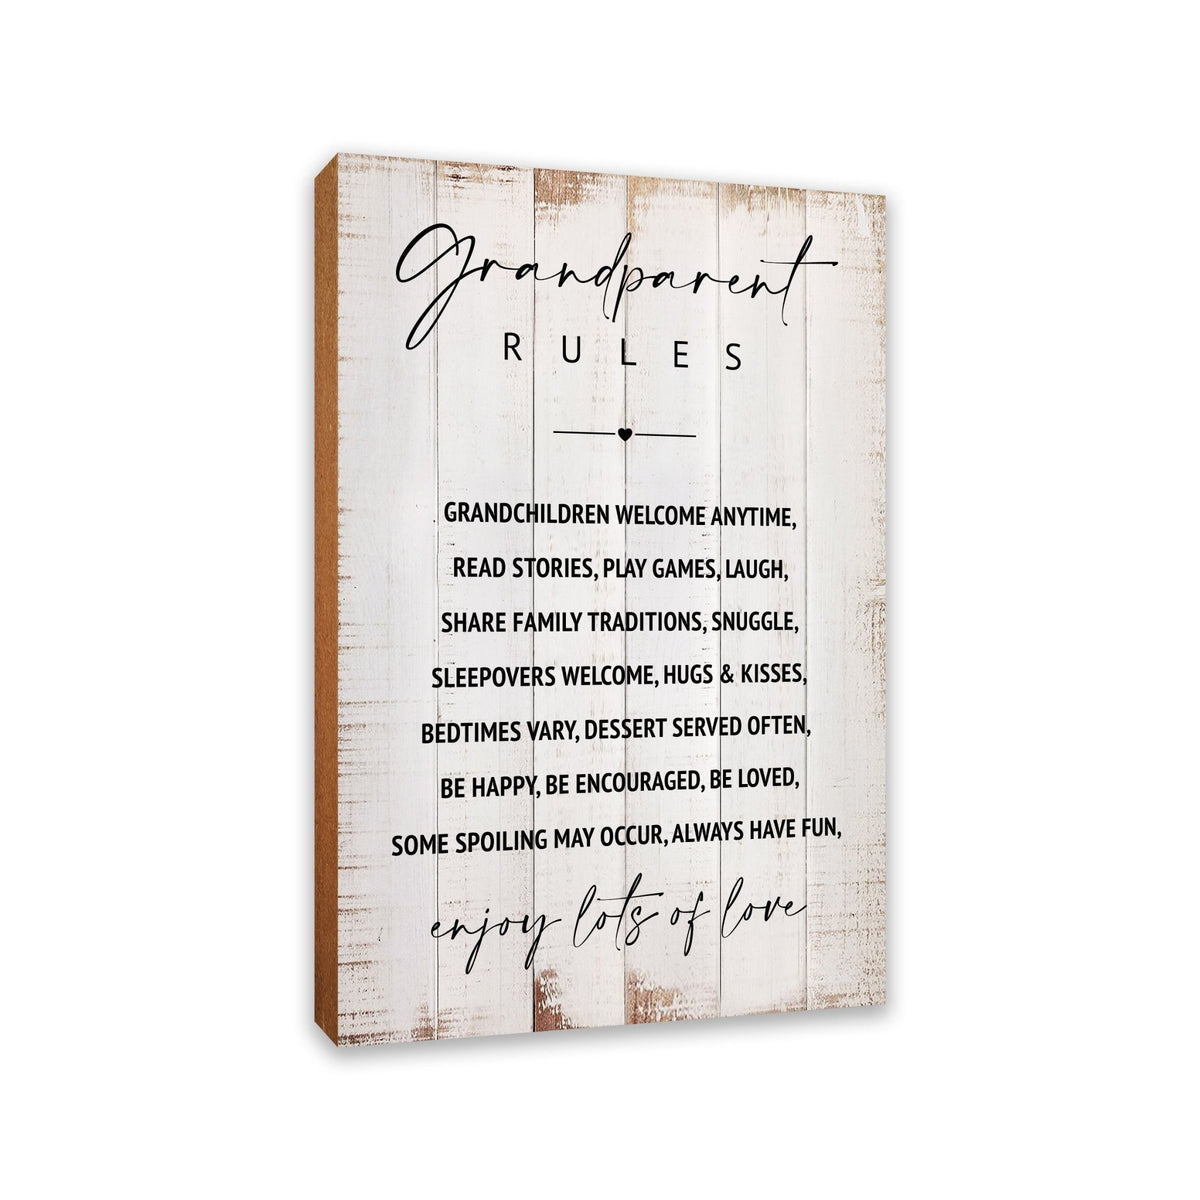 Grandparent
RULES
GRANDCHILDREN WELCOME ANYTIME,
READ STORIES, PLAY GAMES, LAUGH,
SHARE FAMILY TRADITIONS, SNUGGLE,
SLEEPOVERS WELCOME, HUGS & KISSES,
BEDTIMES VARY, DESSERT SERVED OFTEN,
BE HAPPY, BE ENCOURAGED, BE LOVED,
SOME SPOILING MAY OCCUR, ALWAYS HAVE FUN,
enjoy lots of love